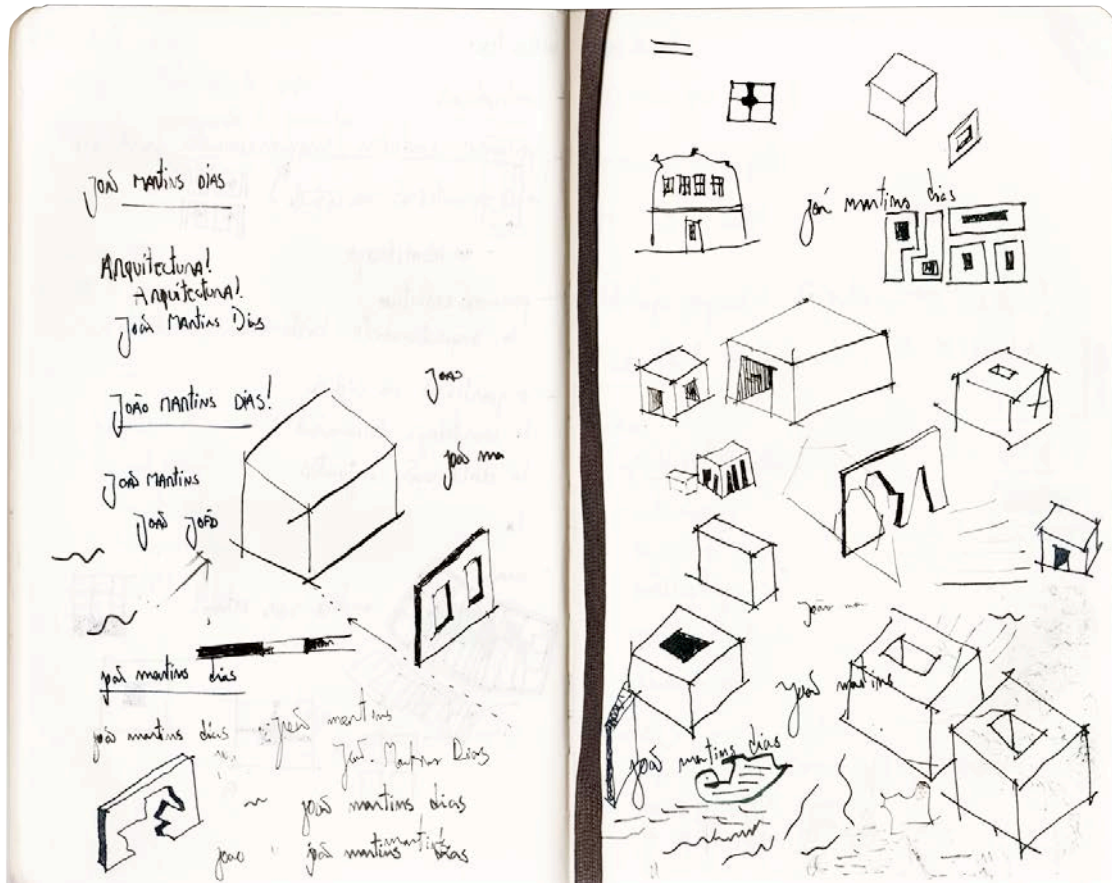 João MARTINS DIAS
ARquitectura!
ARquitectura!
João MARTINS DIAS
JOÃO MARTINS DIAS!
João
João MARTINS
joão ma
João JOÃO
joão martins dias
joão martins dias
joão martins
João Martins Dias
joão martins dias
joao
joão martins dias
martins
joão martins dias
joão ma
joão martins
joão martins dias